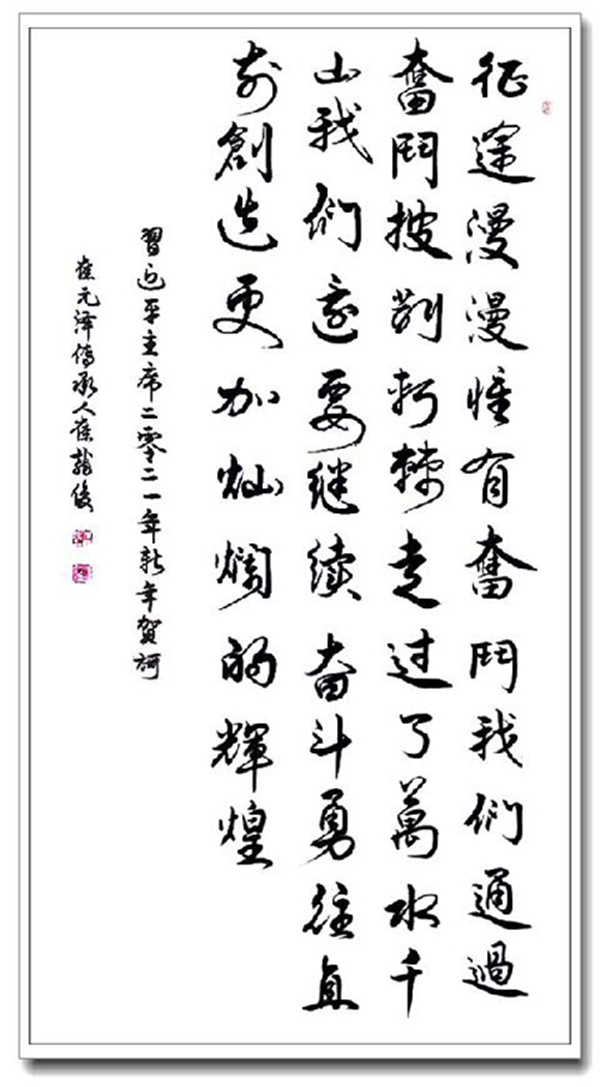 征途漫漫惟有奮鬥我們通過
奮鬥披荆斬棘走过了萬水千
山我們還要继续奋斗勇往直
前創造更加灿爛的輝煌
習近平主席二零二一年新年賀詞
崔元泽傳承人崔龍俊